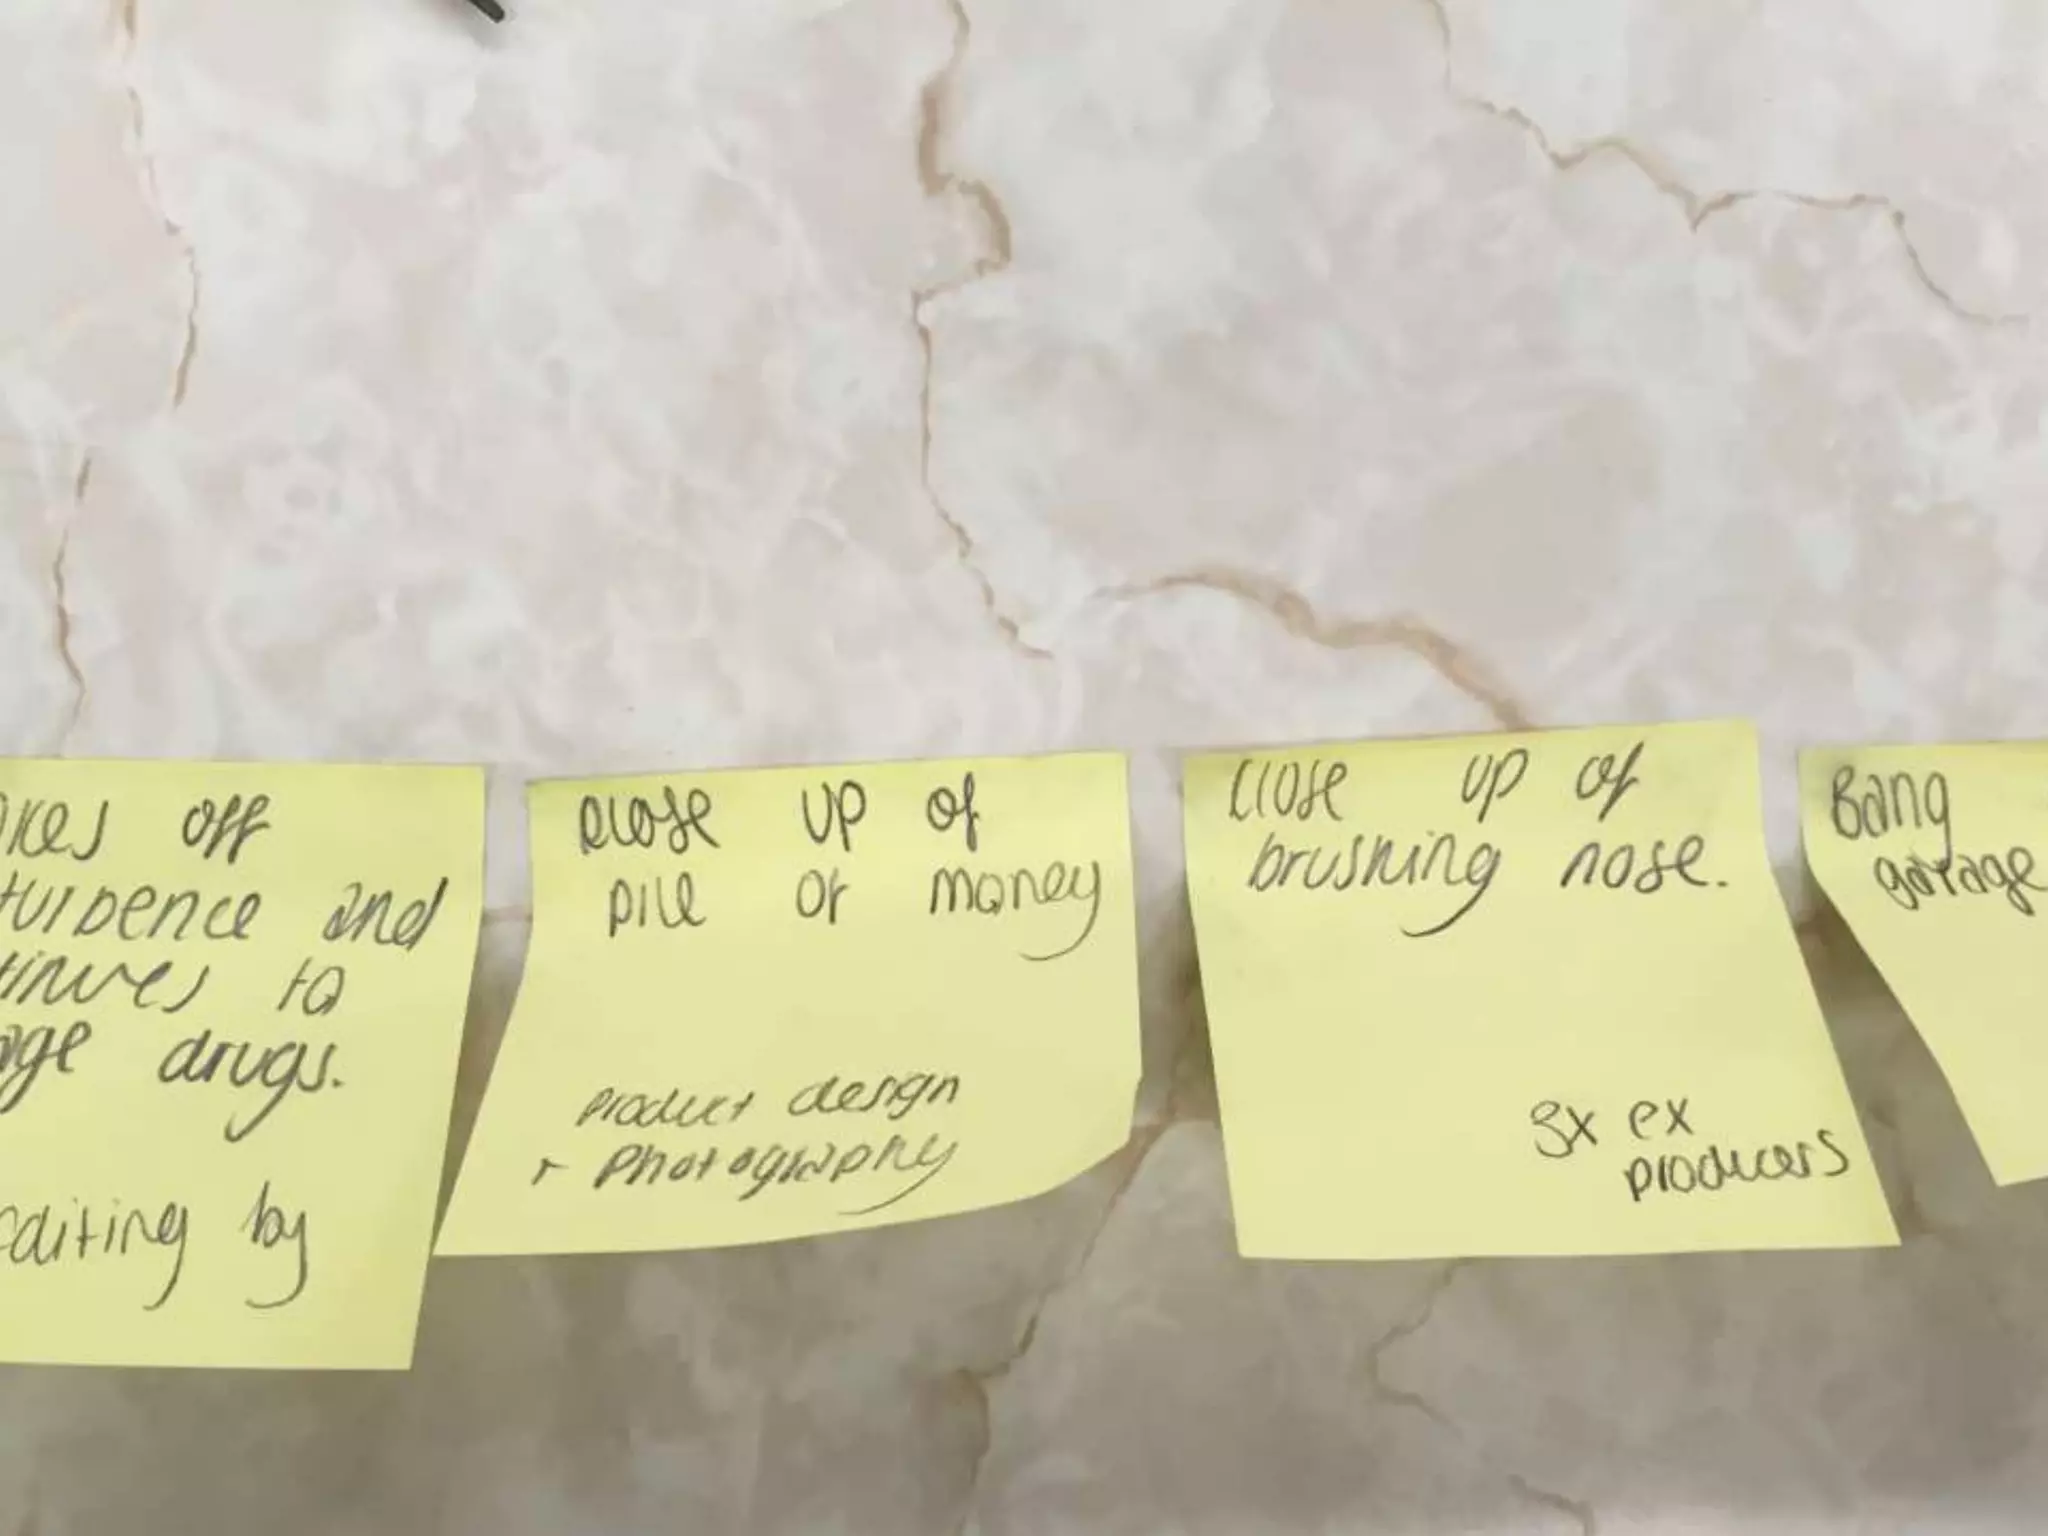 off
and
to
drugs.
editing by
Close up of
pile of money
Product design
+ Photography
Close up of
brushing nose.
3x ex
producers
Bang
garage